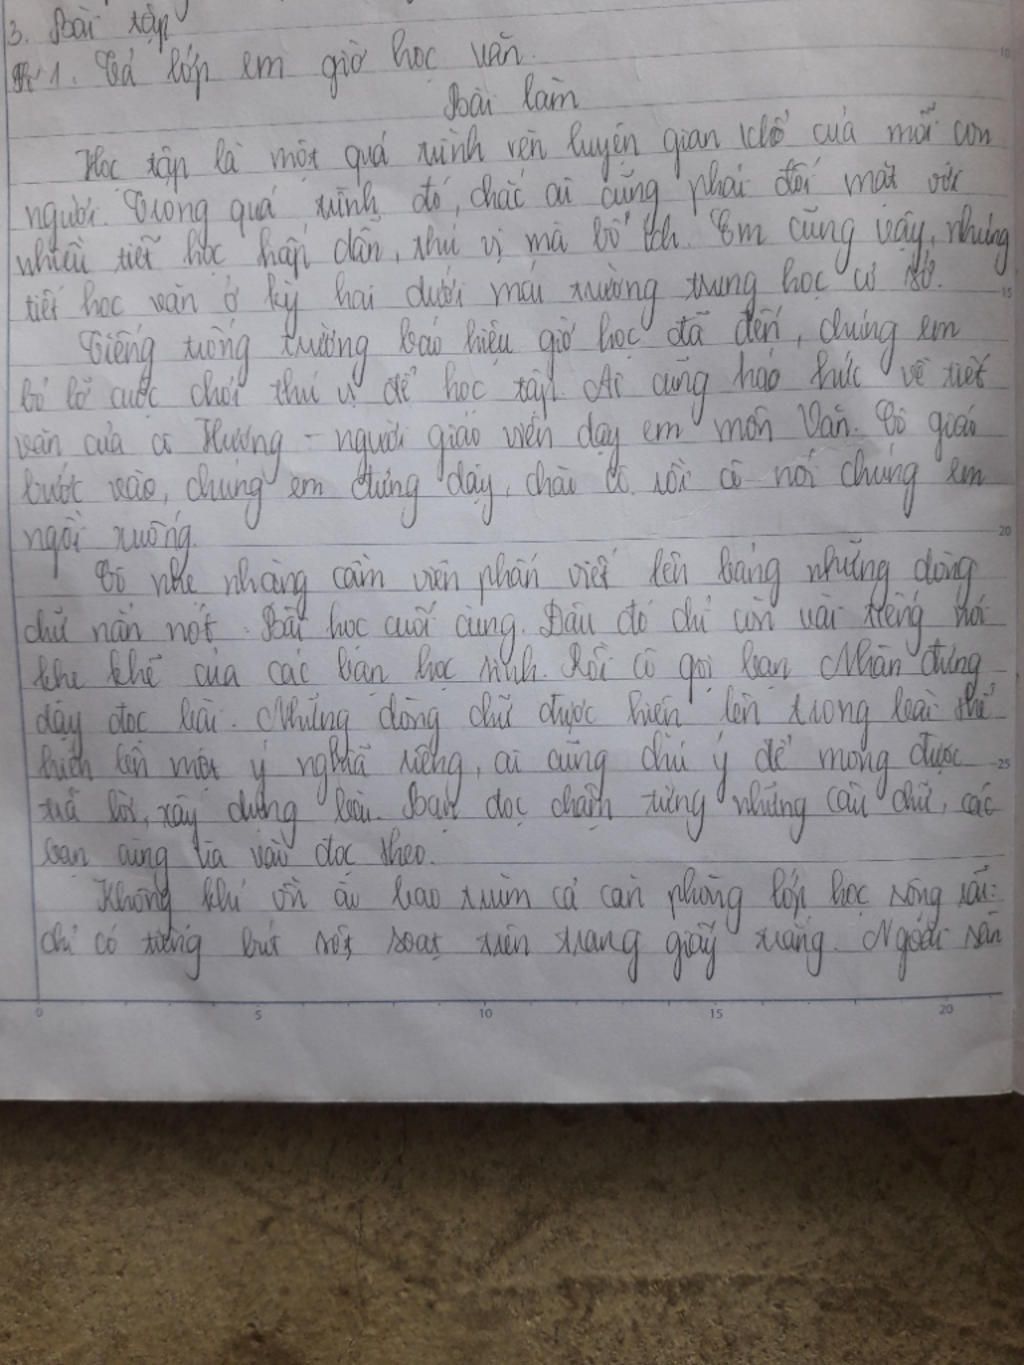 3. Bài tập
1. Tả lớp em giờ học văn.
Bài làm
Học tập là một quá trình rèn luyện gian khổ của mỗi con
người. Trong quá trình đó, chắc ai cũng phải đối mặt với
nhiều tiết học hấp dẫn, thú vị mà bổ ích. Em cũng vậy, những
tiết học văn ở kỳ hai dưới mái trường trung học cơ sở.
Tiếng trống trường báo hiệu giờ học đã đến, chúng em
bỏ lỡ cuộc chơi thú vị để học tập. Ai cũng háo hức về tiết
văn của cô Hương - người giáo viên dạy em môn Văn. Cô giáo
bước vào, chúng em đứng dậy, chào cô rồi cô nói chúng em
ngồi xuống.
Cô nhẹ nhàng cầm viên phấn viết lên bảng những dòng
chữ nắn nót. Bài học cuối cùng. Đâu đó chỉ còn vài tiếng nói
khe khẽ của các bạn học sinh. Rồi cô gọi bạn Nhân đứng
dậy đọc bài. Những dòng chữ được hiện lên trong bài thể
hiện lên một ý nghĩa riêng, ai cũng chú ý để mong được
trả lời, xây dựng bài. Bạn đọc chậm từng những câu chữ, các
bạn cũng lia vào đọc theo.
Không khí ồn ào bao trùm cả căn phòng lớp học rộng rãi:
chỉ có tiếng bút sột soạt trên trang giấy trắng. Ngoài sân